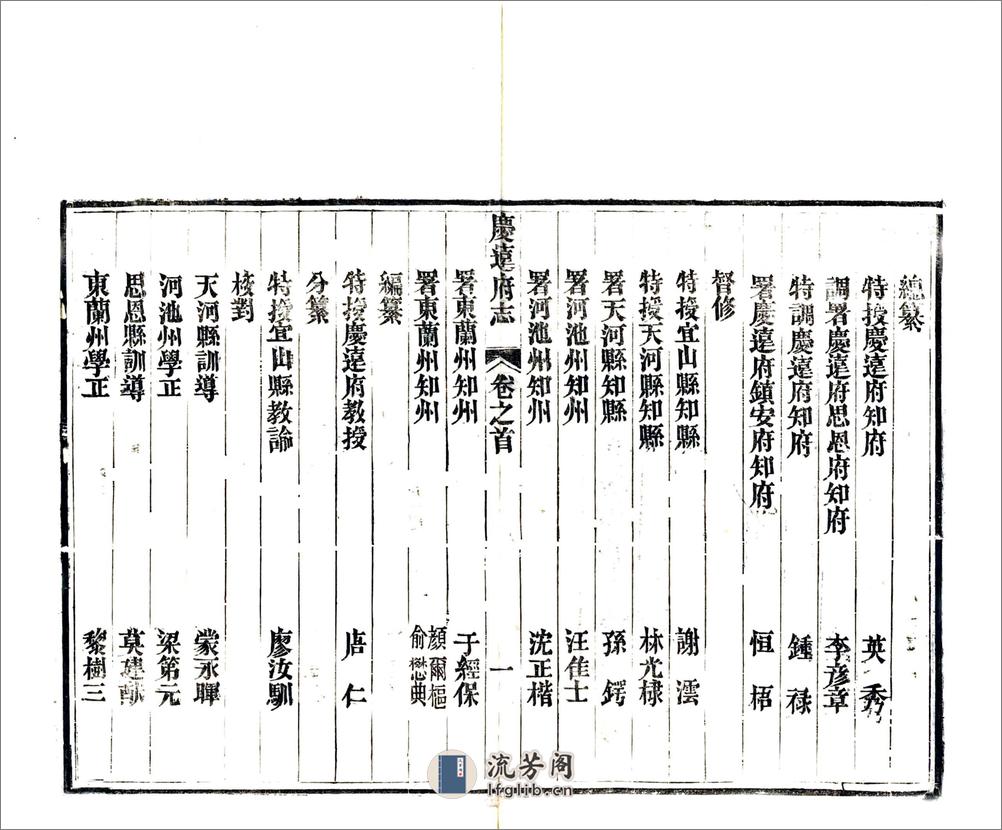 總纂
特授慶遠府知府 英秀
調署慶遠府思恩府知府 李彥章
特調慶遠府知府 鍾祿
署慶遠府鎮安府知府 恒梧
督修
特授宜山縣知縣 謝澐
特授天河縣知縣 林光棣
署天河縣知縣 孫鍔
署河池州知州 汪隹士
署河池州知州 沈正楷
慶遠府志 卷之首 一
署東蘭州知州 于經保
署東蘭州知州 顏爾樞 俞懋典
編纂
特授慶遠府教授 唐仁
分纂
特授宜山縣教諭 廖汝馴
校對
天河縣訓導 蒙永暉
河池州學正 梁第元
思恩縣訓導 莫建
東蘭州學正 黎樹三
流芳阁
lfglib.cn